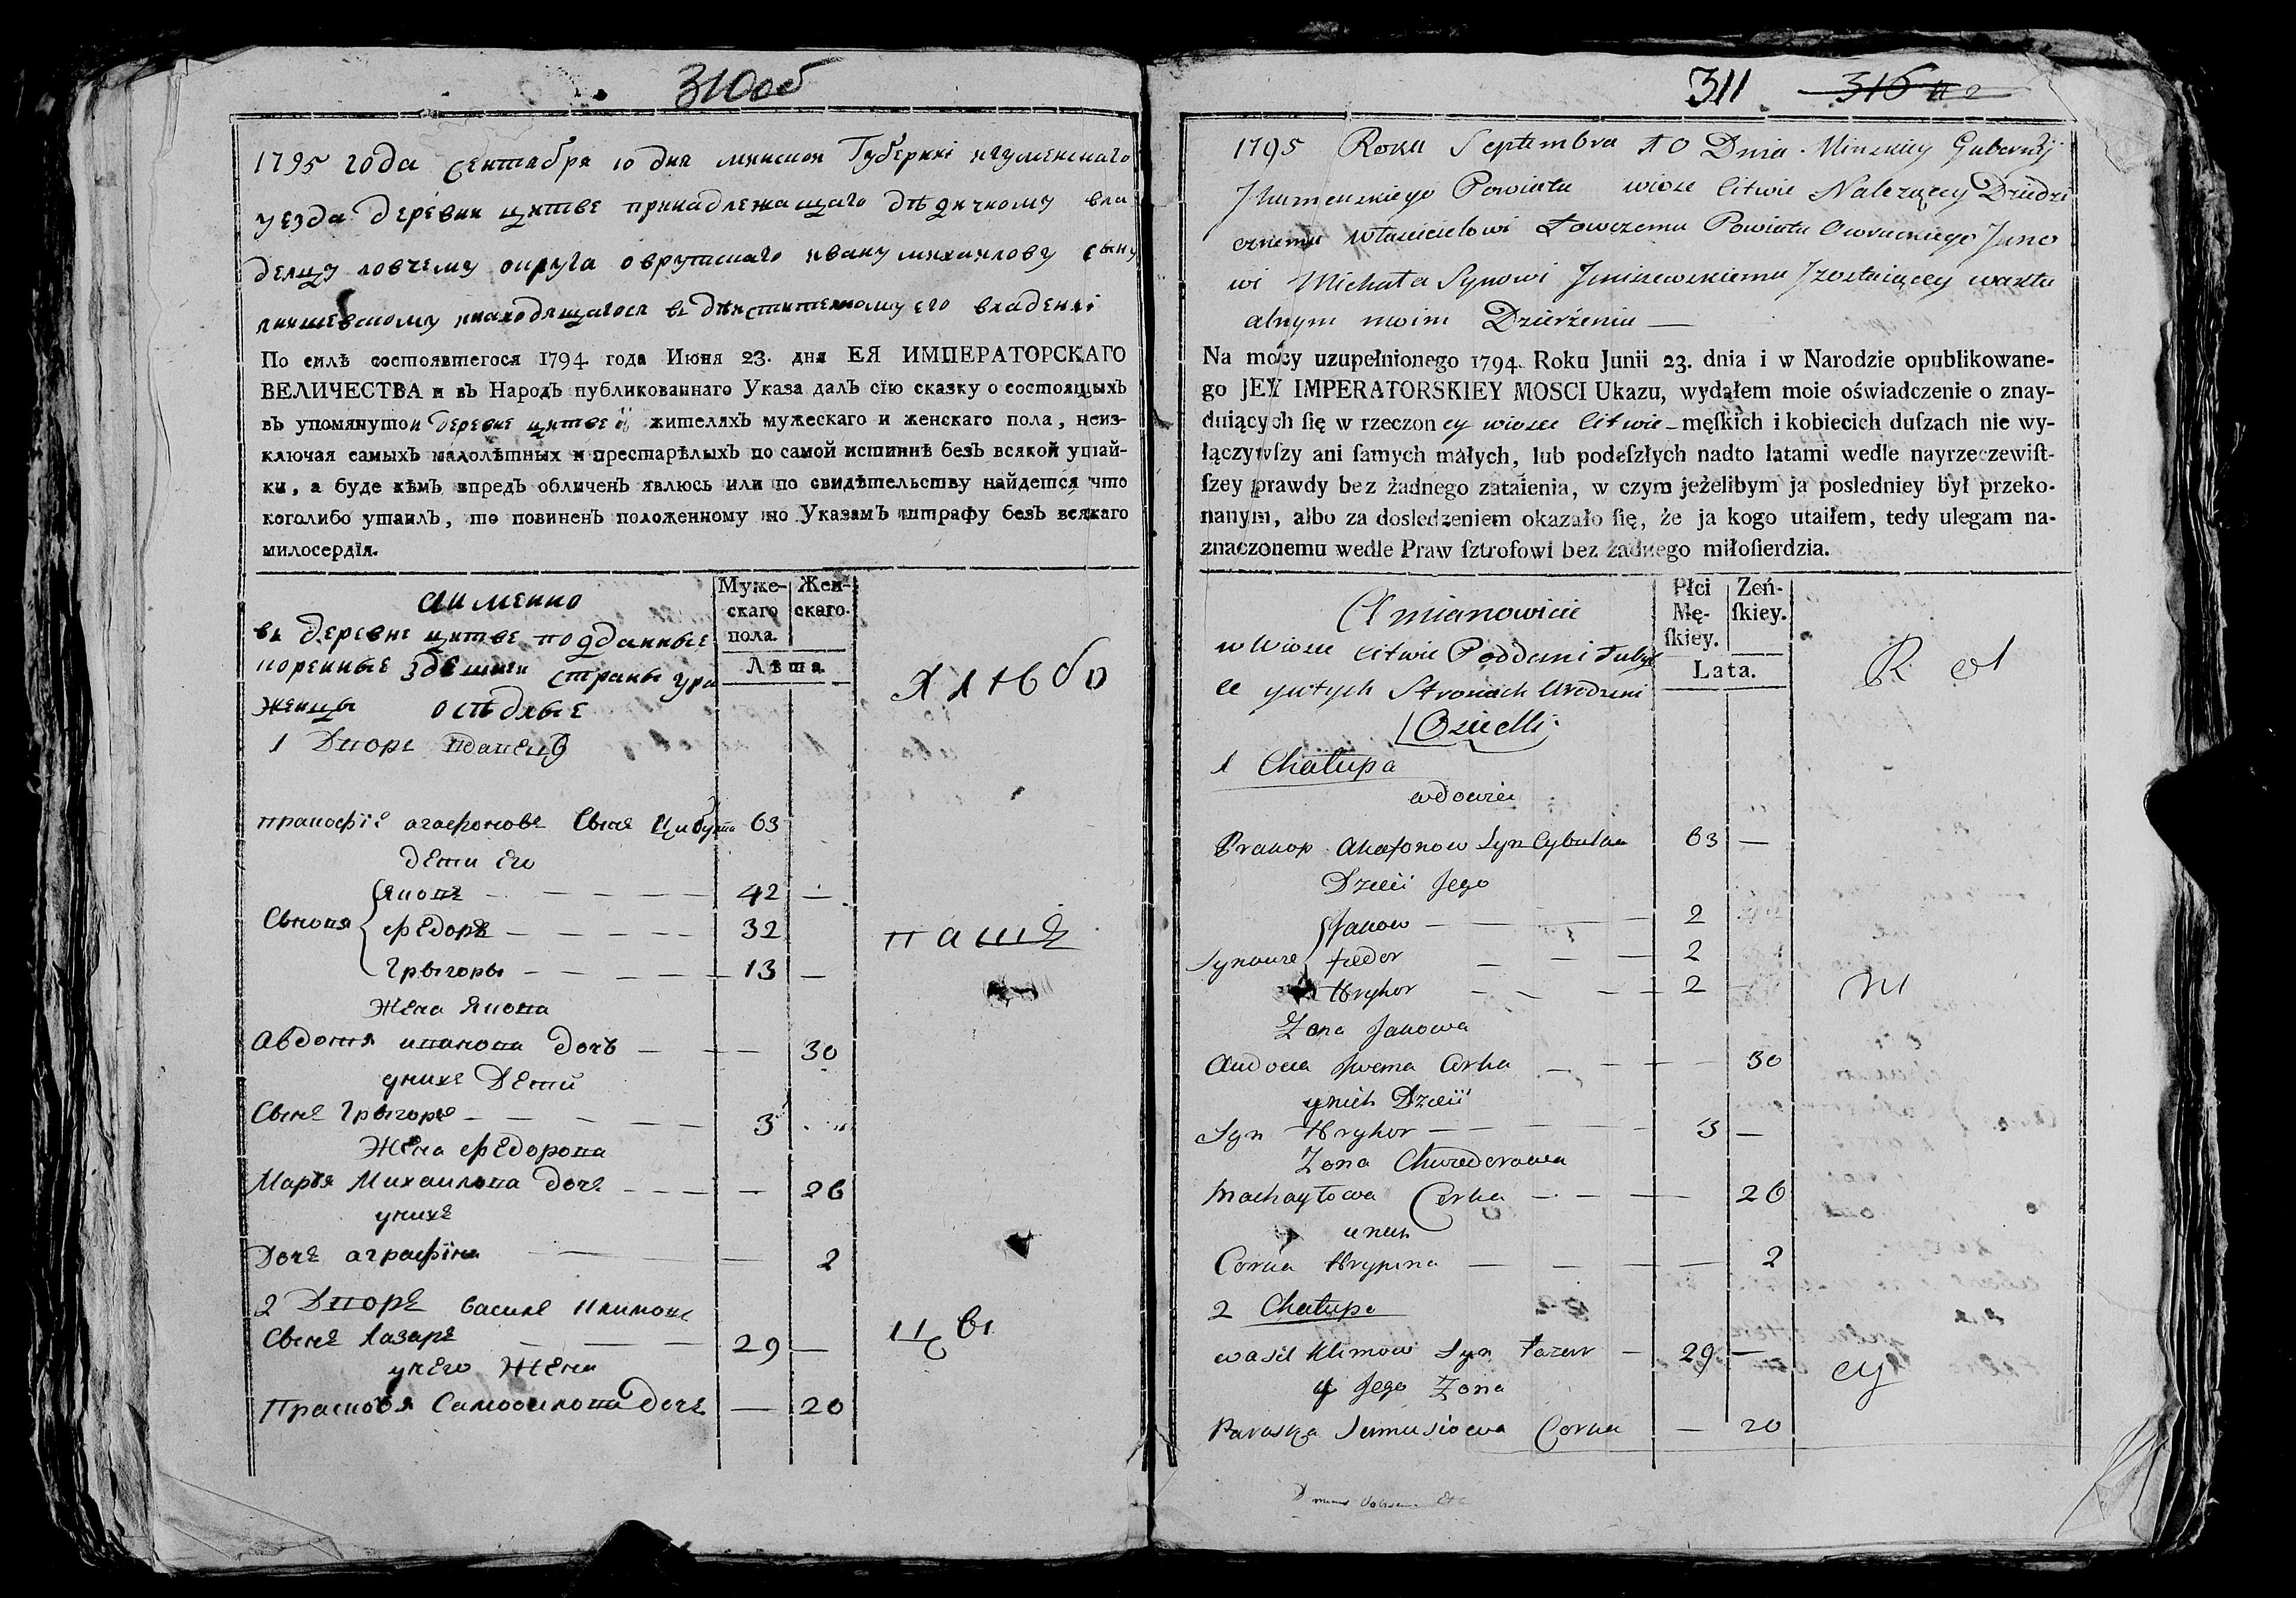 310об
1795 года сентабра 10 дня минскои Губерниі игуменскаго
уезда деревни цитве принадлежащаго дѣдичному вла
делцу ловчему округа овруцкаго ивану михаилову сыну
находящагося вь его владениі
По силѣ состоявшегося 1794 года Июня 23. дня ЕЯ ИМПЕРАТОРСКАГО
ВЕЛИЧЕСТВА и въ Народъ публикованнаго Указа далъ сїю сказку о состоящыхъ
въ упомянутои деревне цитве жителяхъ мужескаго и женскаго пола, неиз-
ключая самыхъ малолѣтныхъ и престарѣлыхъ по самой истиннѣ безъ всякой утай-
ки, а буде кѣмъ впредъ обличенъ явлюсь или по свидѣтельству найдется что
коголибо утаилъ, то повиненъ положенному по Указамъ штрафу безъ всякаго
милосердїя.
аименно
вь деревне цитве подданные
коренные здешнеи страны уро
женцы оседлые
Муже-
скаго
пола.
Жен-
скаго.
Лѣта
1 Дворъ
пракофїе агафоновъ Сынъ Цибулка 63
дети Его
Яковъ — 42 —
Сыновя федоръ — 32
Грыгоры — 13 —
Жена Якова
Авдотя доч — 30
унихъ Дети
Сынъ Грыгоръ — 3
Жена федорова
Марья Михаилова дочъ — 26
унихъ
Дочъ аграфїна — 2
2 Дворъ василъ Климовъ
Сынъ Лазаръ — 29 —
унего Жена
Прасковя Самоилова Дочъ — 20
311 315
1795 Roku Septembra 10 Dnia Minskiey Gubernij
Jhumenskiego Powiatu wiosce Citwie Nalezącey Dziedzi
cznemu Właścicielowi Łowczemu Powiatu Owruckiego Jano
wi Michała Synowi Jzostaiącey waktu
alnym moim Dzierżeniu —
Na mocy uzupełnionego 1794. Roku Junii 23. dnia i w Narodzie opublikowane-
go JEY IMPERATORSKIEY MOSCI Ukazu, wydałem moie oświadczenie o znay-
duiących ſię w rzeczoney wiosce Citwie - męſkich i kobiecich duſzach nie wy-
łączywſzy ani ſamych małych, lub podeſzłych nadto latami wedle nayrzeczewiſt-
ſzey prawdy bez żadnego zataienia, w czym jeżelibym ja posledniey był przeko-
nanym, albo za dosledzeniem okazało ſię, że ja kogo utaiłem, tedy ulegam na-
znaczonemu wedle Praw ſztrofowi bez żadnego miłoſierdzia.
Amianowicie
wWiosce Citwie Poddani Tuby
ce ywtych Stronach Urodzeni
Osiedli
Płci
Mę-
ſkiey.
Zeń-
ſkiey.
Lata.
1 Chałupa
wdowiec
Prakop Ahafonow Syn Cybulka 63 —
Dzieci Jego
Jakow — 2
Synowie Fiedor — 2
Hryhor — 2
Zona Jakowa
Audocia Corka — 30
ynich Dzieci
Syn Hryhor — 3 —
Zona Chwedorowa
Machayłowa Corka — 26
unich
Corka Hrypina — 2
2 Chałupa
Wasil Klimow Syn Łazur — 29 —
y Jego Zona
Paraska Samusiowa Corka — 20